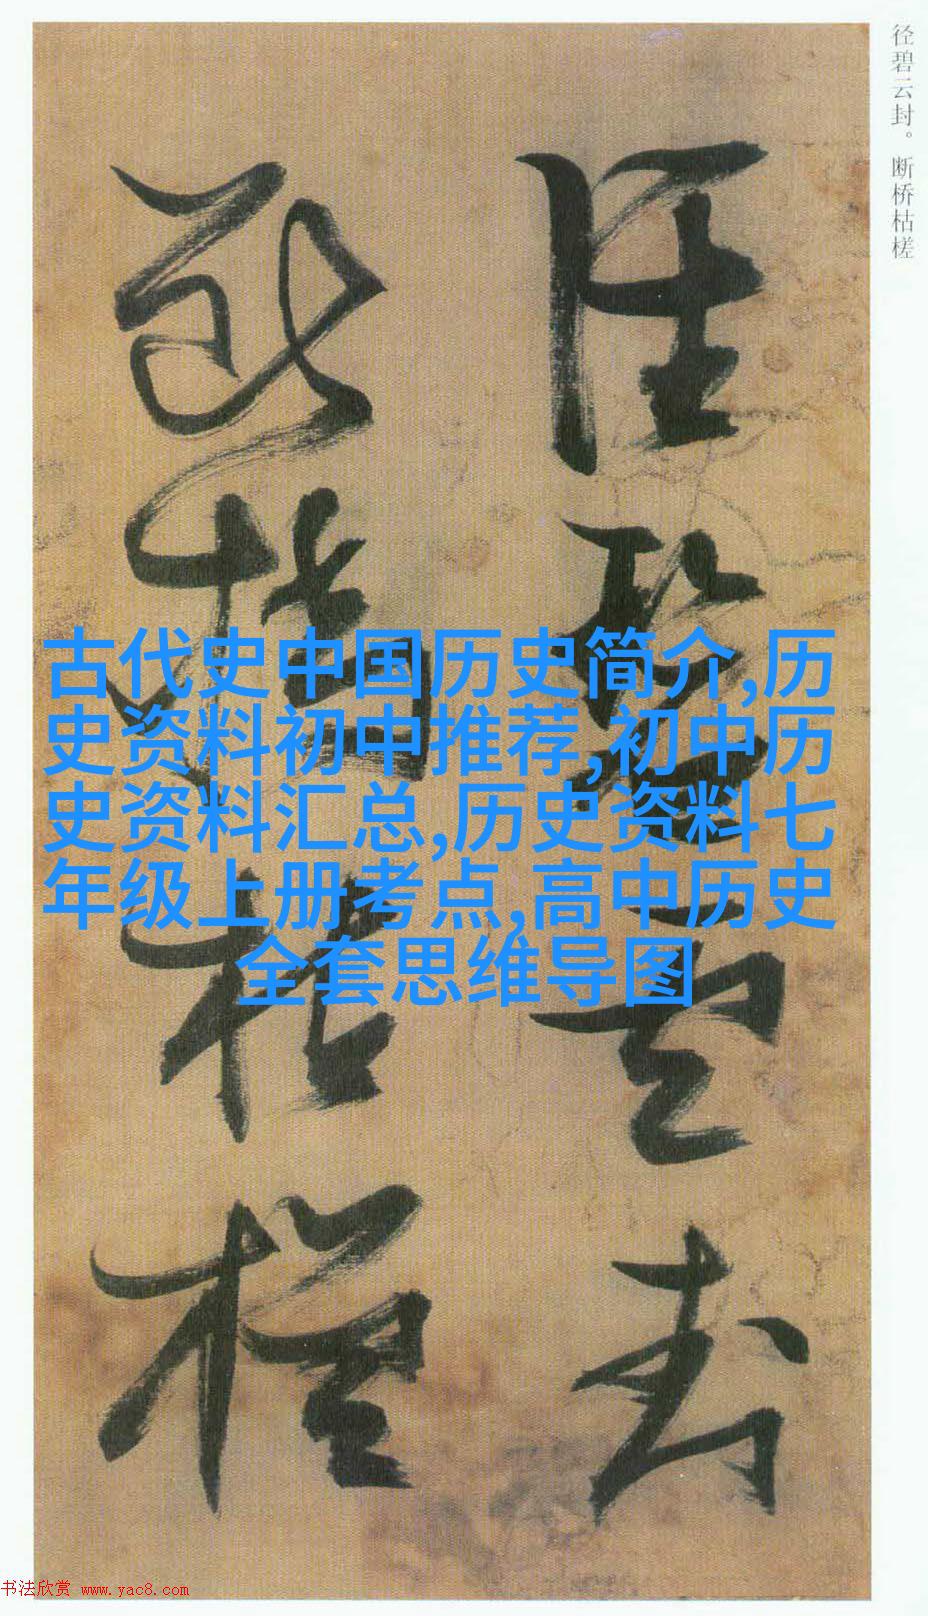 径碧云封。断桥枯槎
径碧云封
断桥枯槎
古代史中国历史简介,历
史资料初中推荐,初中历
史资料汇总,历史资料七
年级上册考点,高中历史
全套思维导图
书法欣赏 www.yac8.com